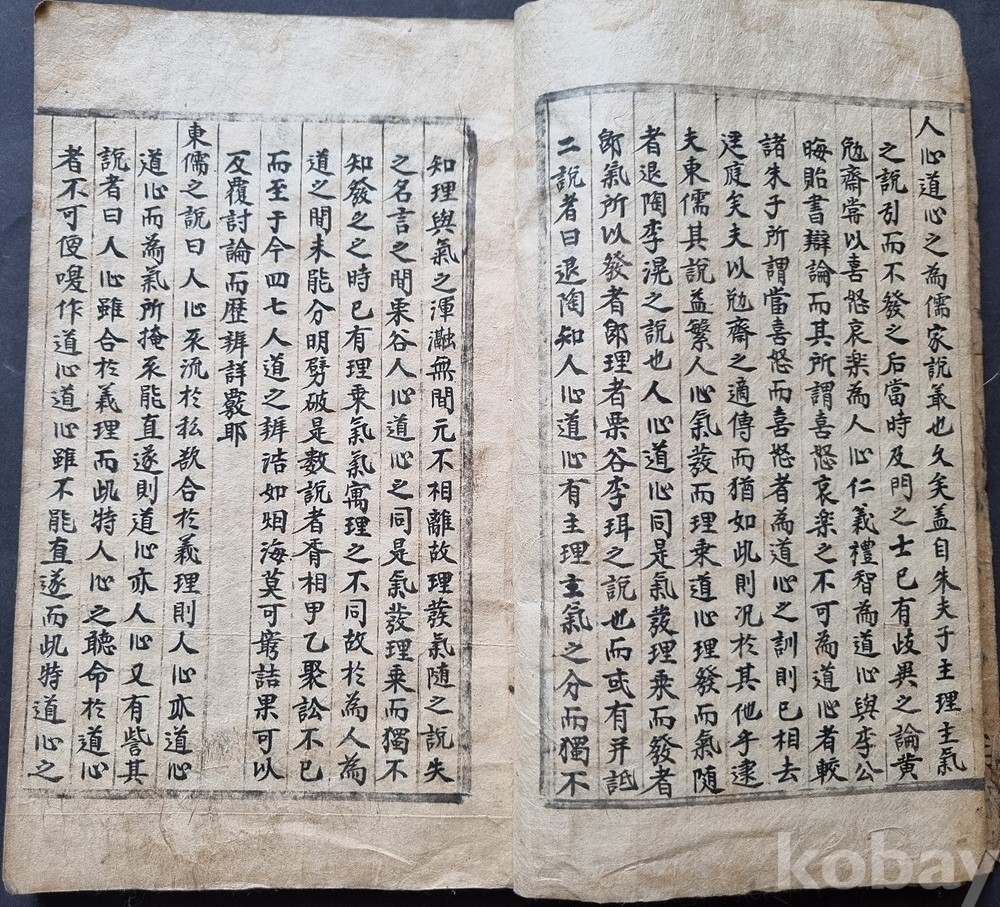 人心道心之為儒家說㝡也久矣盖自朱夫子主理主氣
之說引而不發之后當時及門之士已有歧異之論黃
勉齋嘗以喜怒哀樂為人心仁義禮智為道心與李公
晦貽書辯論而其所謂喜怒哀楽之不可為道心者較
諸朱子所謂當喜怒而喜怒者為道心之訓則已相去
逕庭矣夫以勉齋之適傳而猶如此則况於其他乎逮
夫東儒其說益繁人心氣發而理乗道心理發而氣随
者退陶李滉之說也人心道心同是氣發理乗而發者
即氣所以發者即理者栗谷李珥之說也而或有并詆
二說者曰退陶知人心道心有主理主氣之分而獨不
知理與氣之渾瀜無間元不相離故理發氣随之說失
之名言之間栗谷人心道心之同是氣發理乗而獨不
知發之之時已有理乗氣氣寓理之不同故於為人為
道之間未能分明劈破是数說者胥相甲乙聚訟不已
而至于今四七人道之辨浩如烟海莫可竆詰果可以
反覆討論而歷辨詳覈耶
東儒之說曰人心不流於私欲合於義理則人心亦道心
道心而為氣所掩不能直遂則道心亦人心又有訾其
說者曰人心雖合於義理而此特人心之聽命於道心
者不可便喚作道心道心雖不能直遂而此特道心之
kobay